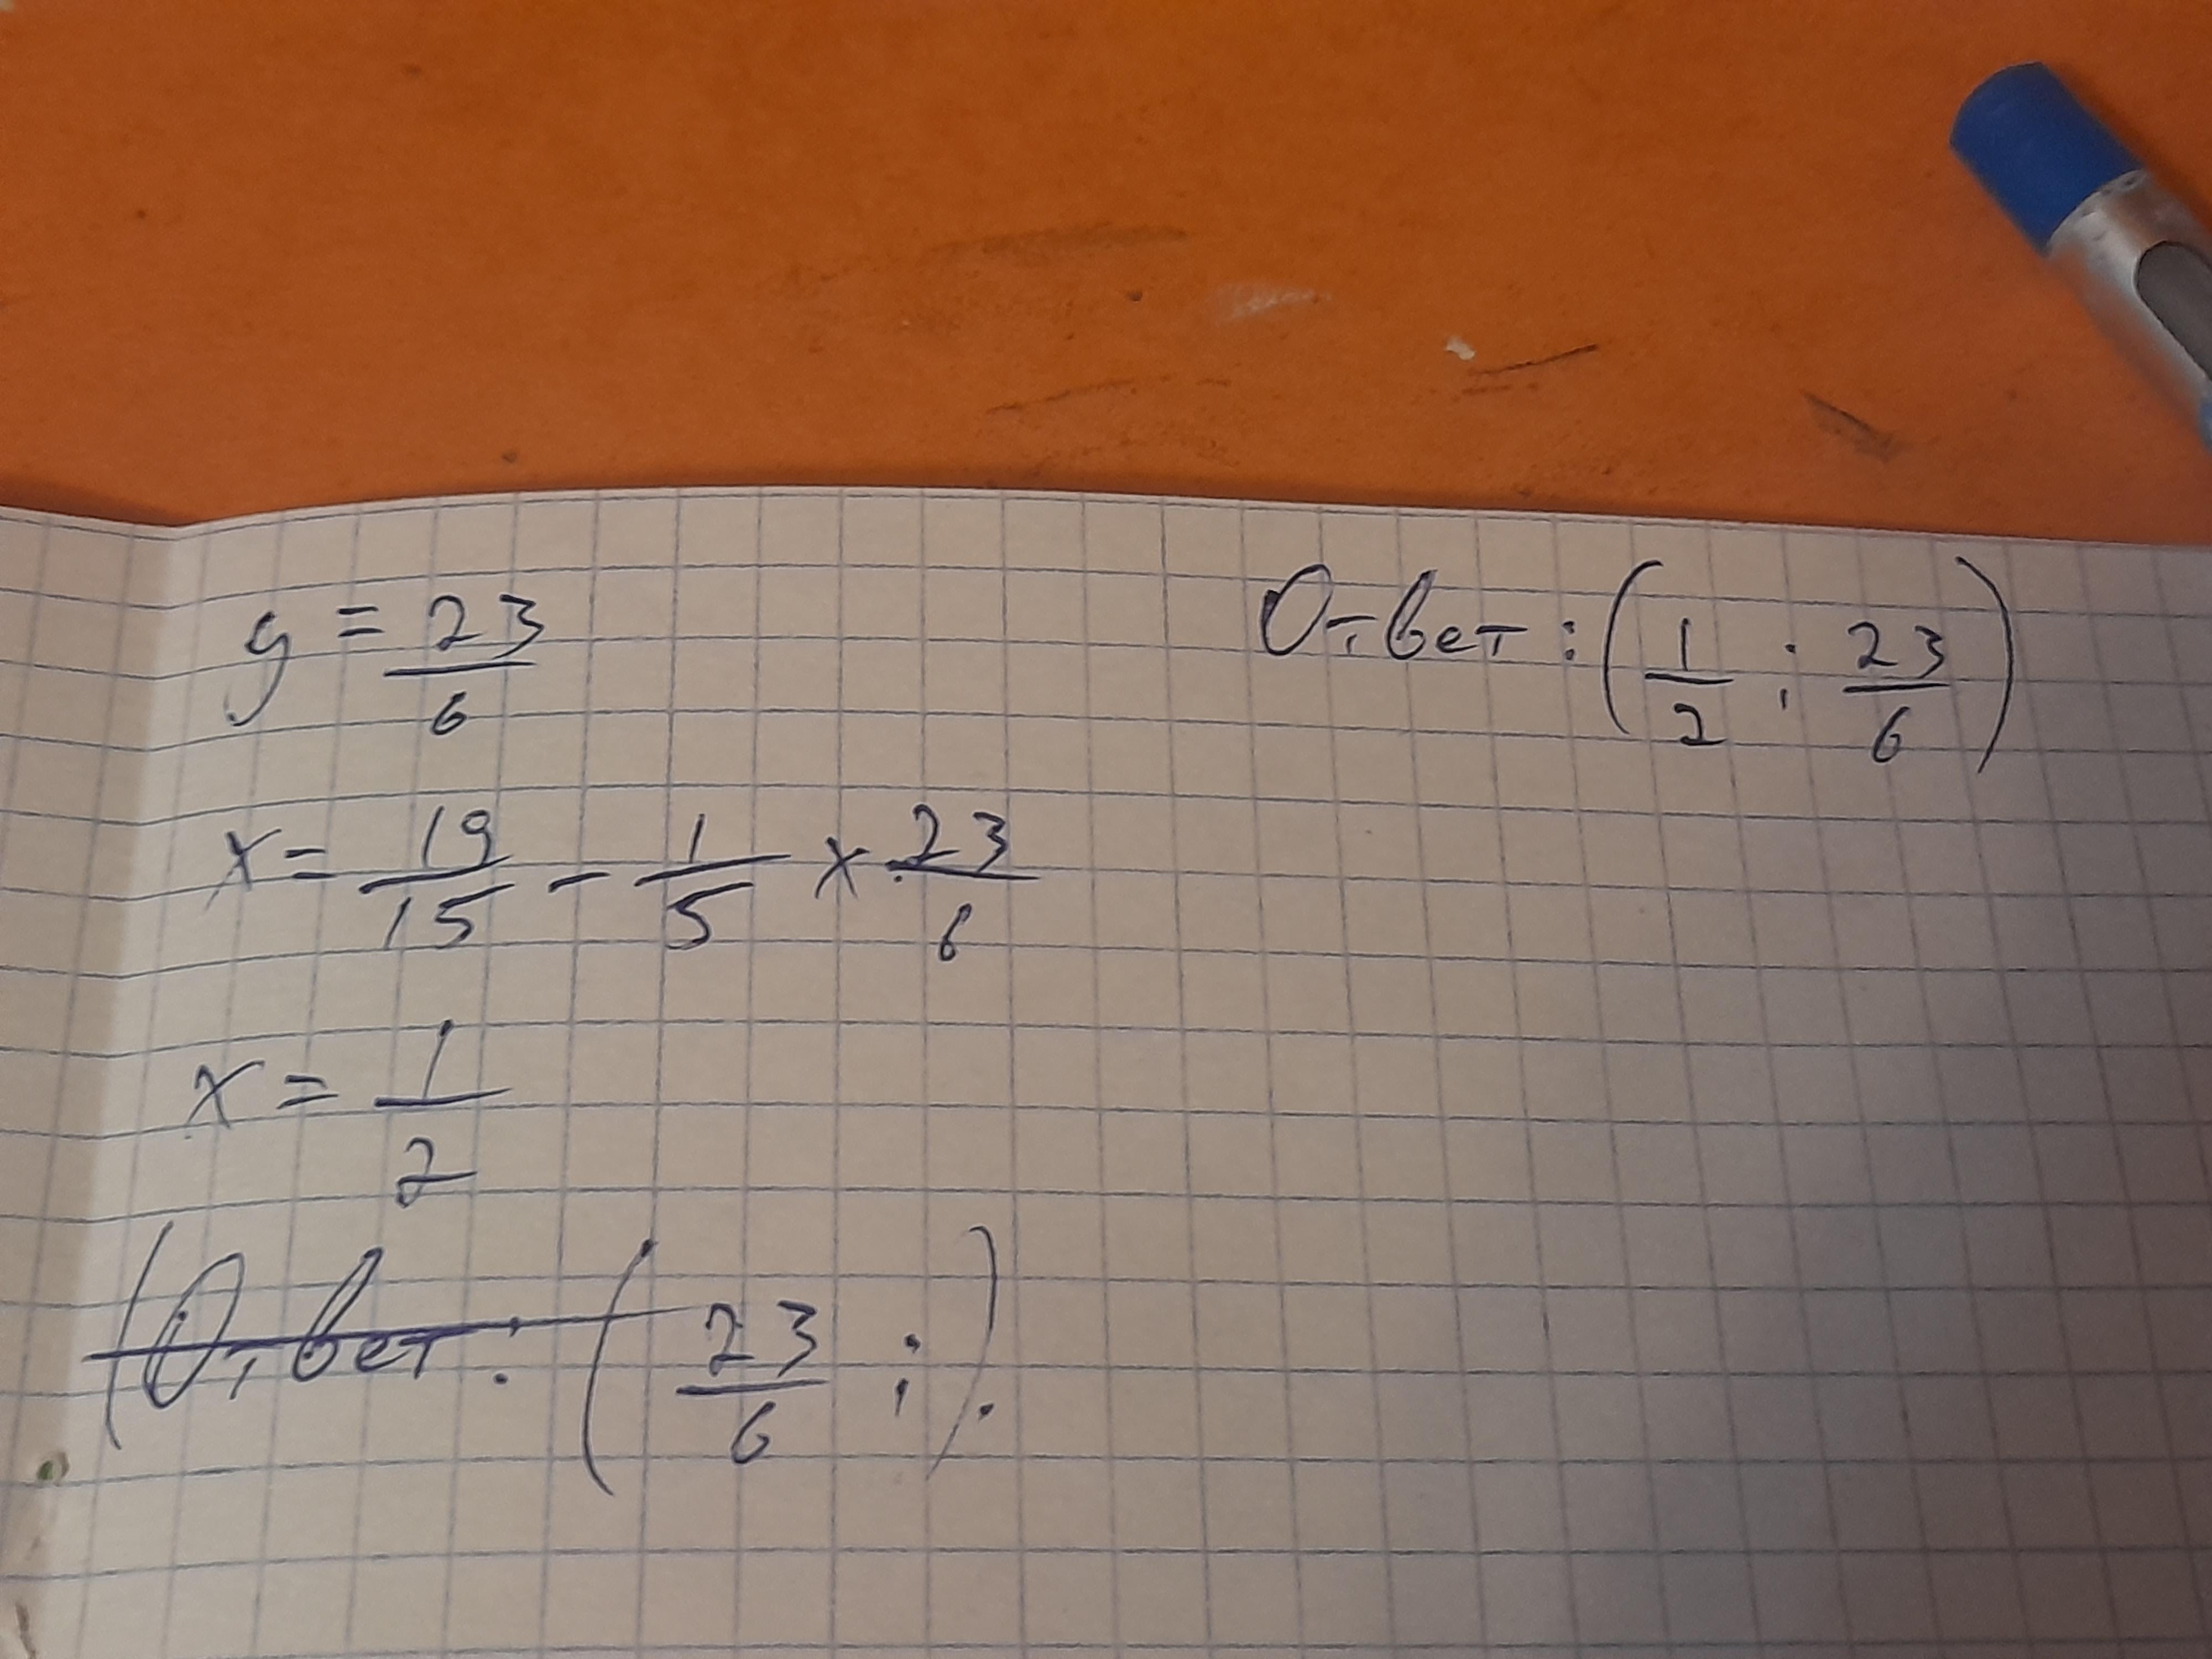 y = 23/6
x = 19/15 - 1/5 × 23/6
x = 1/2
(Ответ: (23/6 ; ).
Ответ: (1/2 ; 23/6)